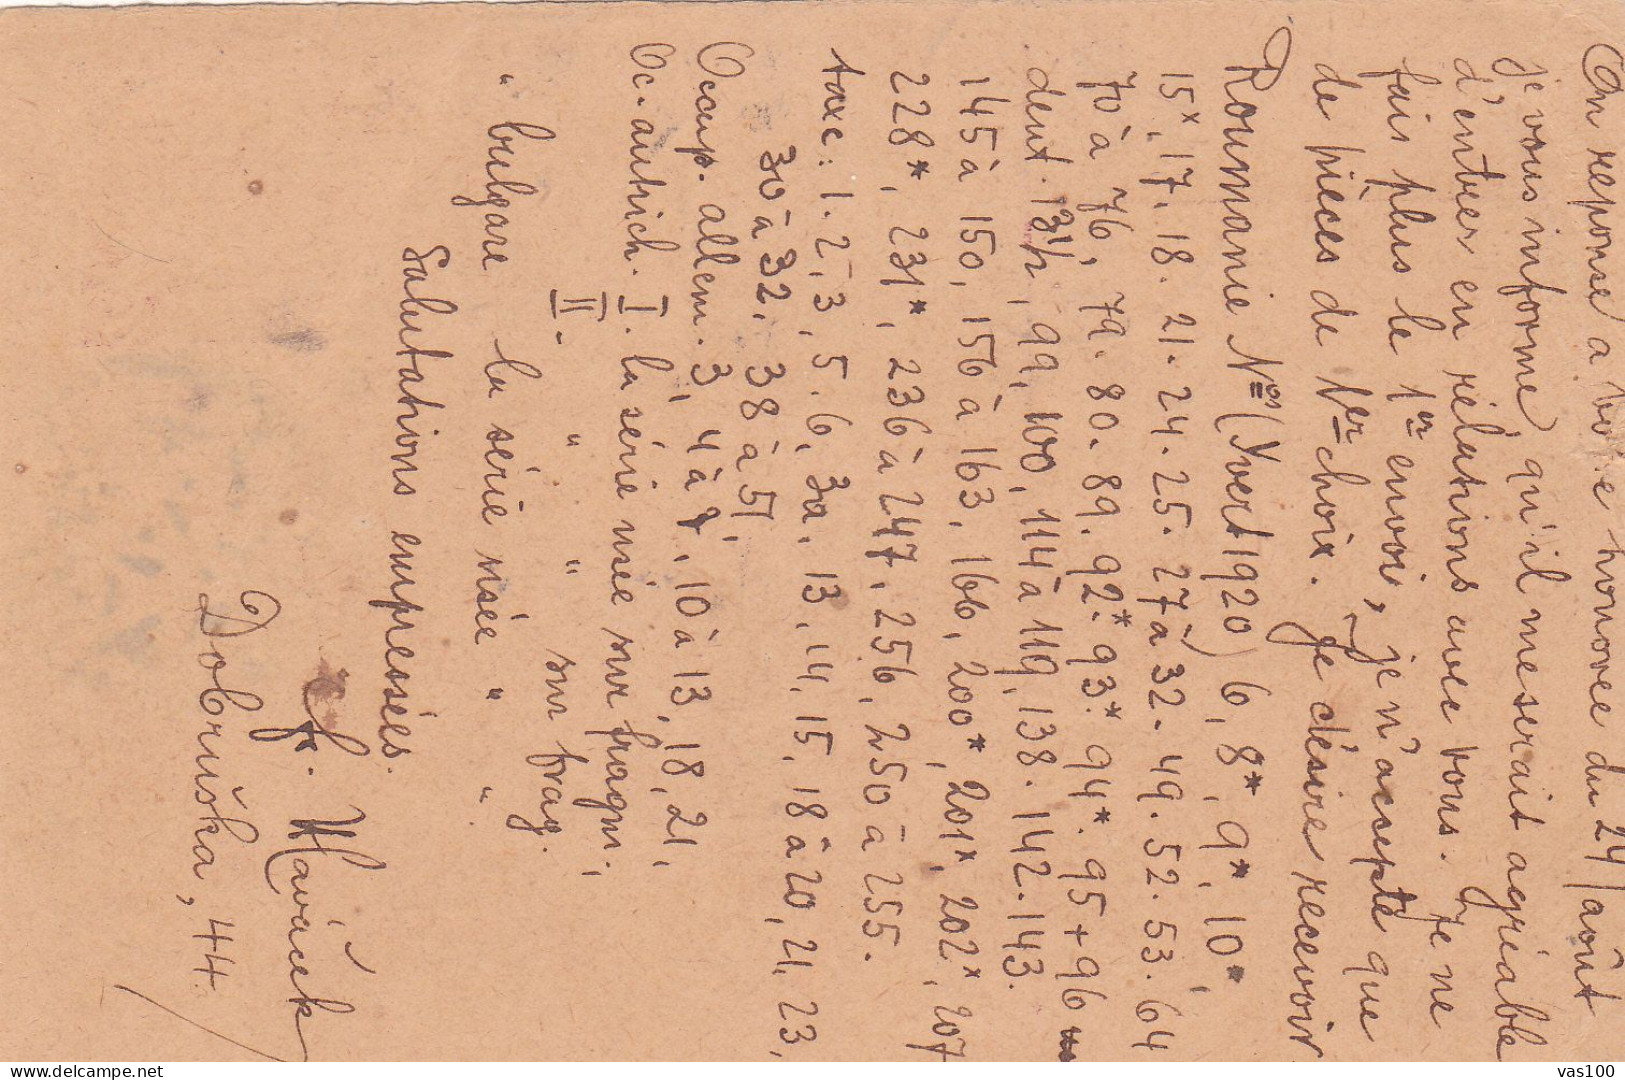 En réponse à votre honorée du 24/août
je vous informe, qu'il me serait agréable
d'entrer en rélations avec vous. Je ne
fais plus le 1er envoi, je n'accepte que
de pièces de 1er choix. Je désire recevoir
Roumanie Nos (Yvert 1920) 6, 8*, 9*, 10*,
15*, 17. 18. 21. 24. 25. 27 à 32. 49. 52. 53. 64
70 à 76, 79. 80. 89. 92.* 93* 94*. 95 + 96
dent. 13½, 99, 100, 114 à 119, 138. 142. 143.
145 à 150, 156 à 163, 166, 200*, 201*, 202*, 207
228*, 231*, 236 à 247, 256, 250 à 255.
taxe: 1. 2, 3, 5. 6, 30. 13, 14, 15, 18 à 20, 21, 23,
30 à 32, 38 à 51
Occup. allem. 3, 4 à 7, 10 à 13, 18, 21,
Oc. autrich. I. la série usée sur fragm.,
II. " " sur frag.
" bulgare la série usée " "
Salutations empressés.
F. Haváček
Dobruška, 44.
vas100
delcampe.net